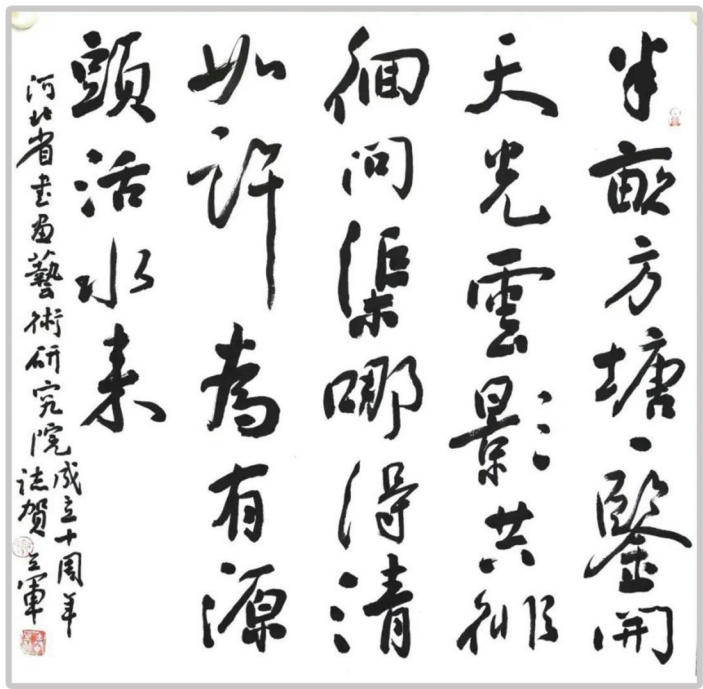 半畝方塘一鑒開
天光雲影共徘
徊問渠哪得清
如許為有源
頭活水来
河北省書畫藝術研究院成立十周年
誌賀 軍